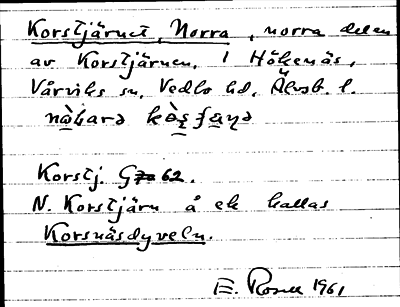 Korstjärnet, Norra, norra delen
av Korstjärnen, i Hökenäs,
Vårviks sn, Vedbo hd, Älvsb. l.
Korstj. G 62.
N. Korstjärn å ek kallas
Korsnäsdyveln.
E. Rosell 1961